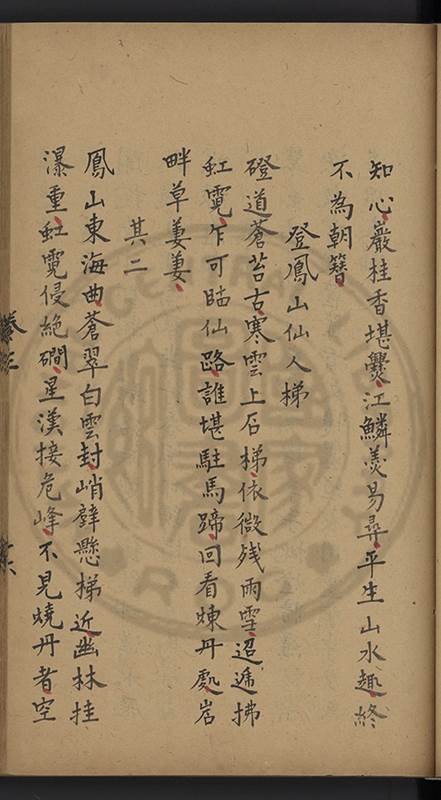 知心巖桂香堪爨江鱗羮易尋平生山水趣終
不為朝簪
登鳳山仙人梯
磴道蒼苔古寒雲上石梯依微殘雨雪迢遞拂
虹霓乍可瞄仙路誰堪駐馬蹄回看煉丹處岩
畔草萋萋
其二
鳳山東海曲蒼翠白雲封峭壁懸梯近幽林挂
瀑重虹霓侵絕磵星漢接危峰不見燒丹者空